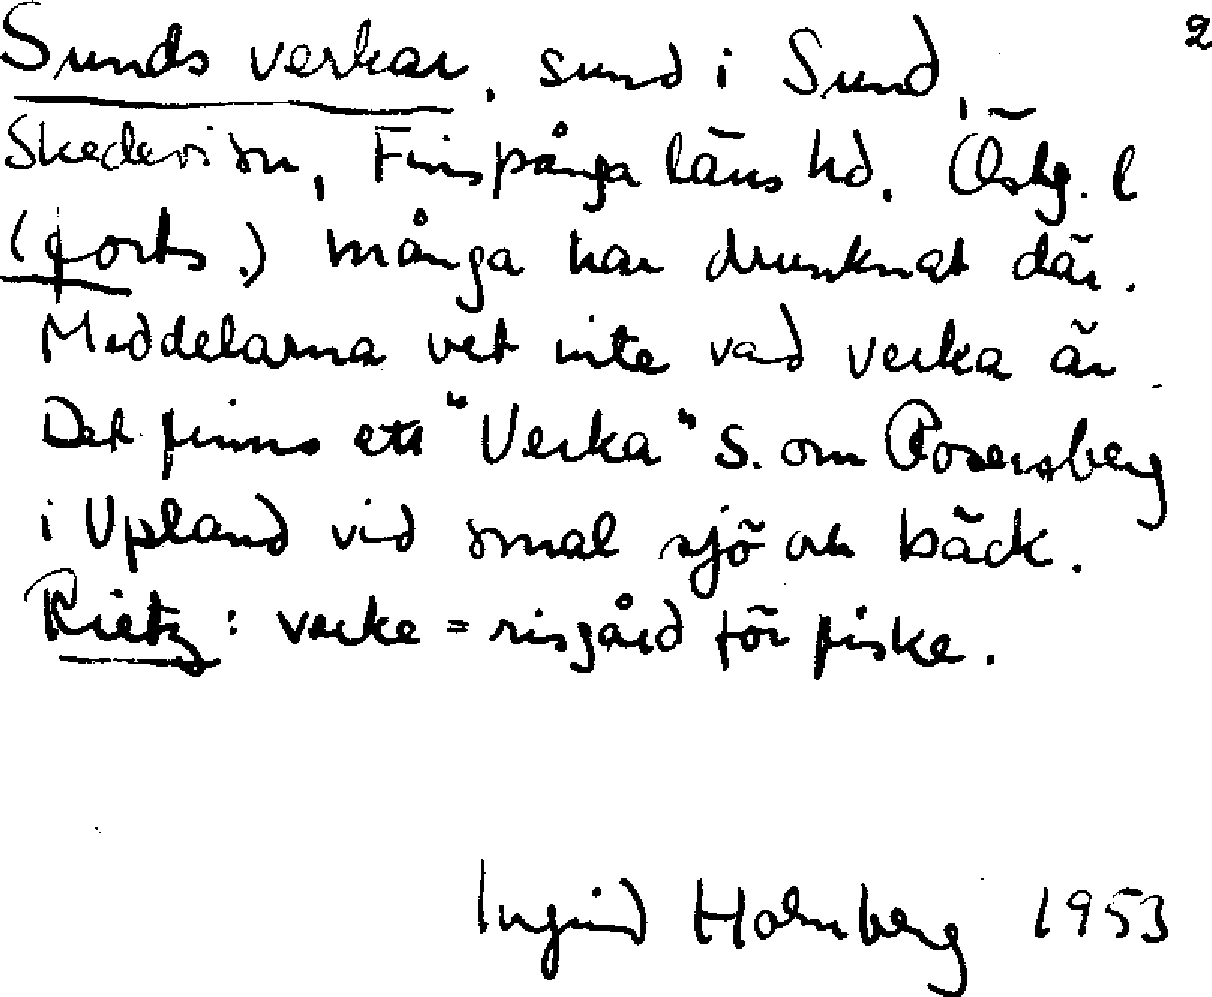 2
Sunds verkar, sund i Sund,
Skedevi sn, Finspånga läns hd. Östg. l
(forts.) många har drunknat där.
Meddelarna vet inte vad verka är.
Det finns ett "Verka" S. om Rosersberg
i Upland vid smal sjö och bäck.
Rietz: verke = risgård för fiske.
Ingrid Holmberg 1953